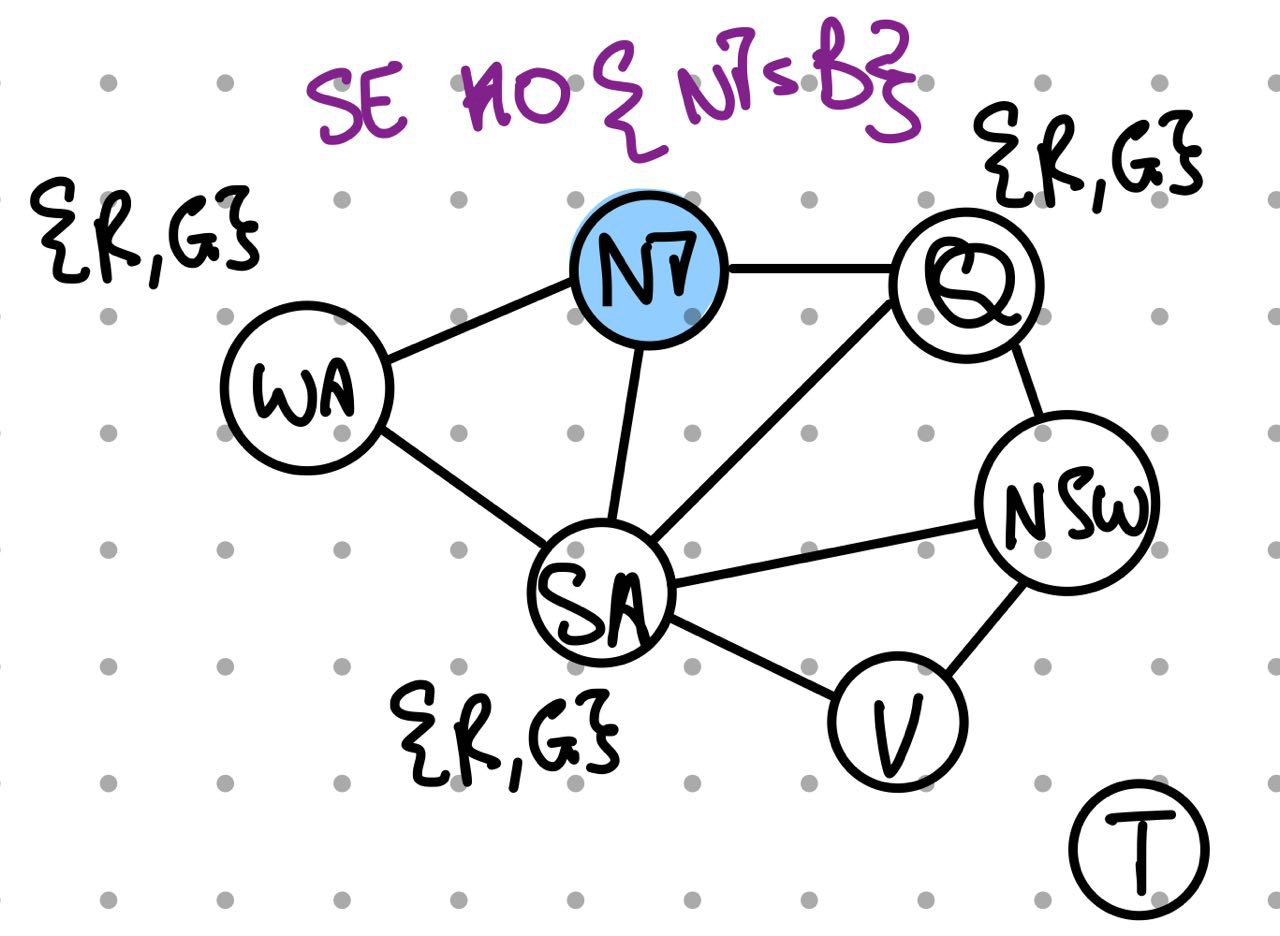 SE NO { NT = B }
{R,G}
{R,G}
NT
Q
WA
NSW
SA
{R,G}
V
T